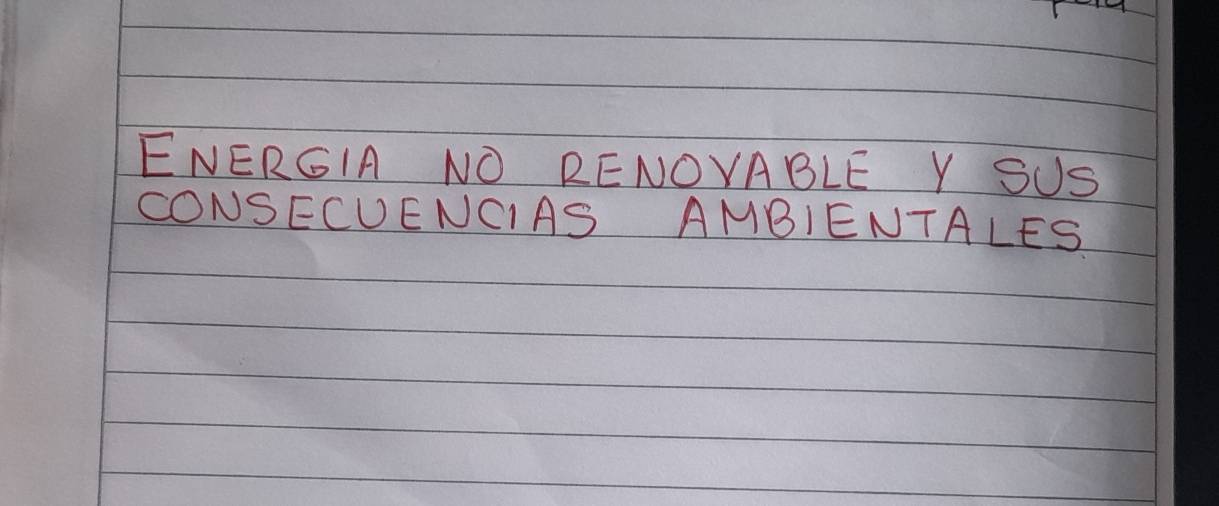 ENERGIA NO RENOVABLE Y SUS
CONSECUENCIAS AMBIENTALES